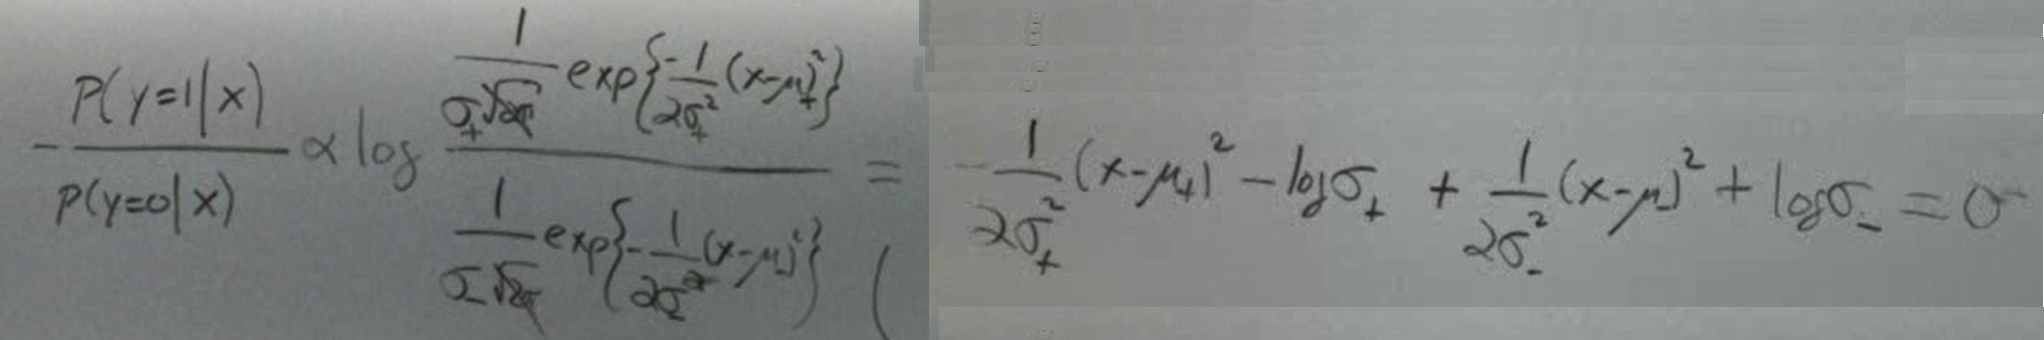 - P(y=1|x) / P(y=0|x) ∝ log (1/(σ₊√2π) exp{-1/(2σ₊²) (x-μ₊)²}) / (1/(σ₋√2π) exp{-1/(2σ₋²) (x-μ₋)²}) = ( -1/(2σ₊²) (x-μ₊)² - log σ₊ + 1/(2σ₋²) (x-μ₋)² + log σ₋ = 0